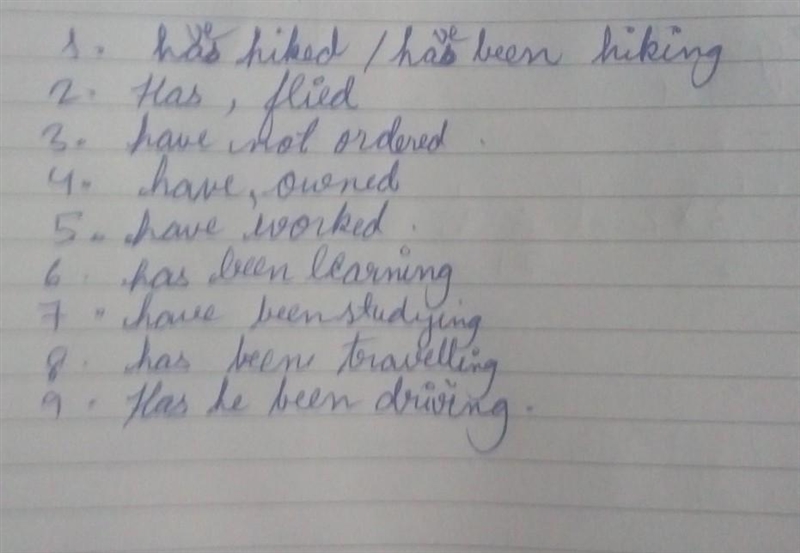 1. have hiked / have been hiking
2. Has, flied
3. have not ordered.
4. have, owned
5. have worked.
6. has been learning
7. have been studying
8. has been travelling
9. Has he been driving.